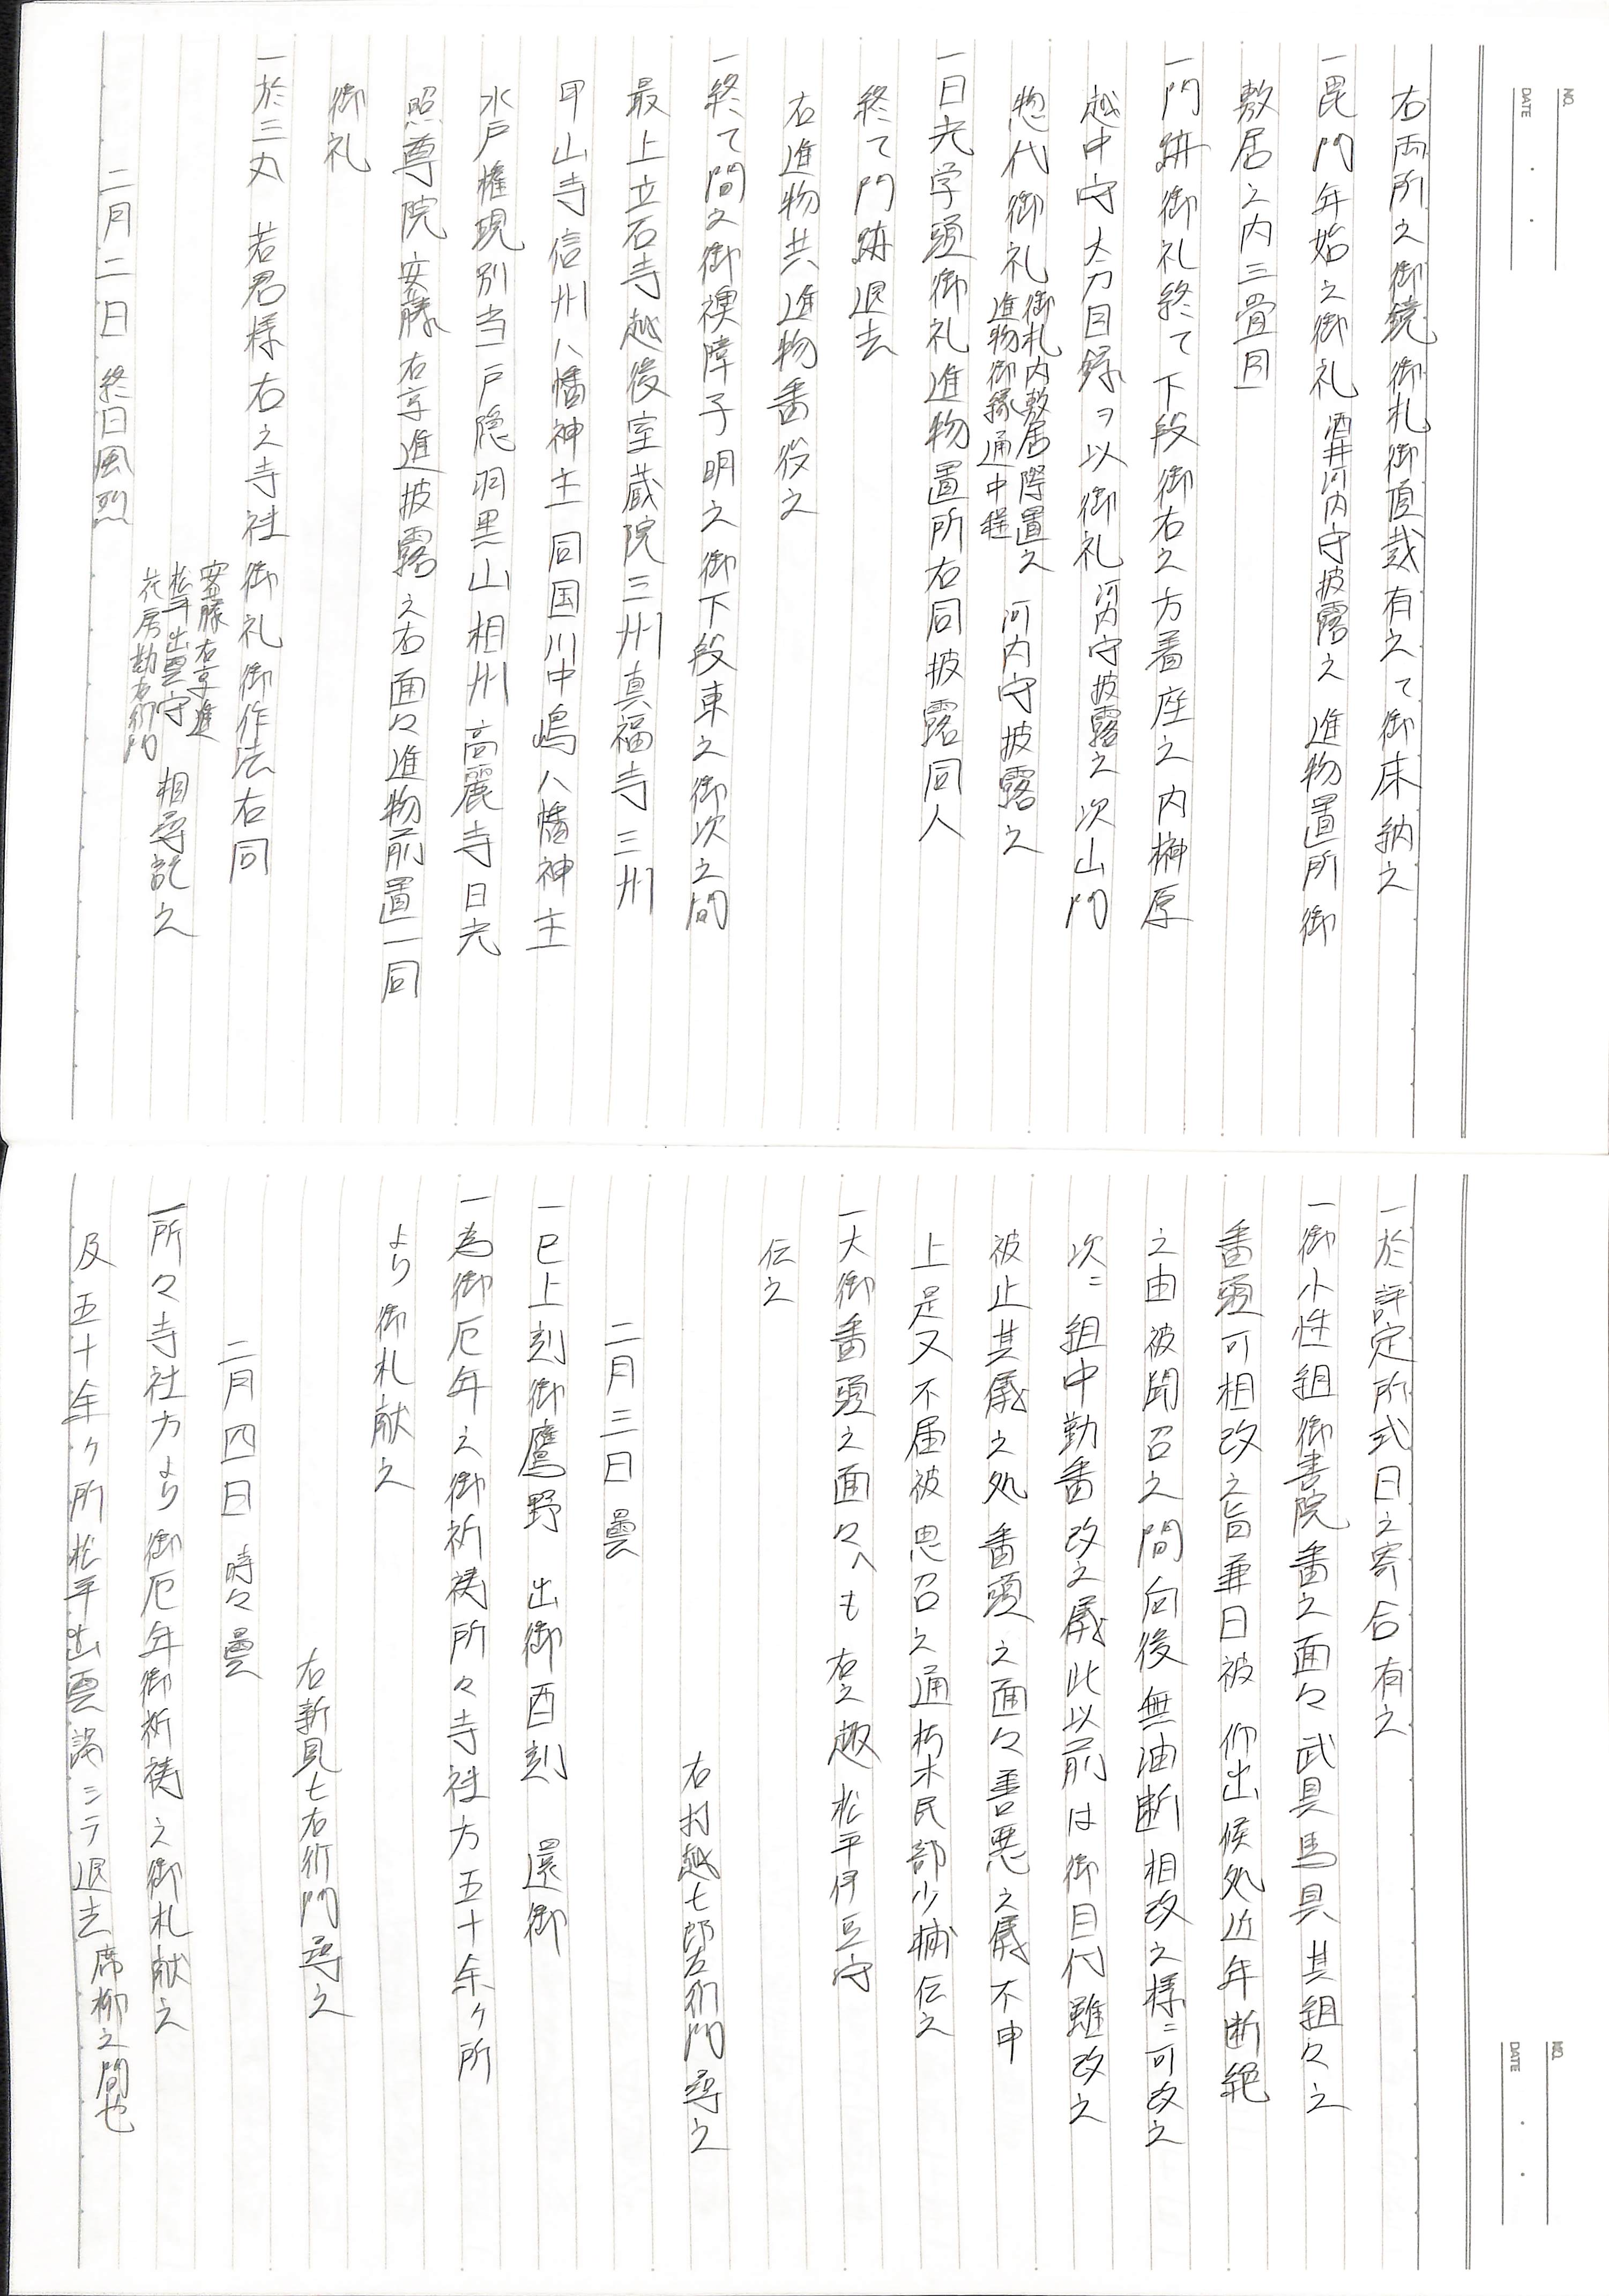 NO.
DATE
右両所之御鏡御札御直裁有之て御床納之
一毘門年始之御礼 酒井河内守披露之 進物置所御
敷居之内三畳目
一門跡御礼終て下段御右之方着座之内榊原
越中守太刀目録ヲ以御礼 河内守披露之 次山門
惣代御礼 御札内敷居際置之 進物御縁通中程 河内守披露之
一日光学頭御礼進物置所右同披露同人
終て門跡退去
右進物共進物番役之
一終て間之御襖障子明之御下段東之御次之間
最上立石寺越後室蔵院三州真福寺三州
甲山寺信州八幡神主同国川中嶋八幡神主
水戸権現別当戸隠羽黒山相州高麗寺日光
照尊院安藤右京進披露之右面々進物前置一同
御礼
一於三丸 若君様右之寺社御礼御作法右同
安藤右京進
松平出雲守 相尋記之
花房勘右衛門
二月二日 終日風烈
一於評定所式日之寄合有之
一御小性組御書院番之面々武具馬具其組々之
番頭可相改之旨兼日被 仰出候処近年断絶
之由被聞召之間向後無油断相改之様ニ可改之
次ニ組中勤番改之儀此以前は御目付雖改之
被止其儀之処番頭之面々善悪之儀不申
上是又不届被 思召之通朽木民部少輔伝之
一大御番頭之面々へも右之趣松平伊豆守
伝之
右村越七郎左衛門尋之
二月三日 曇
一巳上刻御鷹野 出御酉刻 還御
一為御厄年之御祈祷所々寺社方五十余ヶ所
より御札献之
右新見七右衛門尋之
二月四日 時々曇
一所々寺社方より御厄年御祈祷之御札献之
及五十余ヶ所松平出雲謁シテ退去 席柳之間也
NO.
DATE